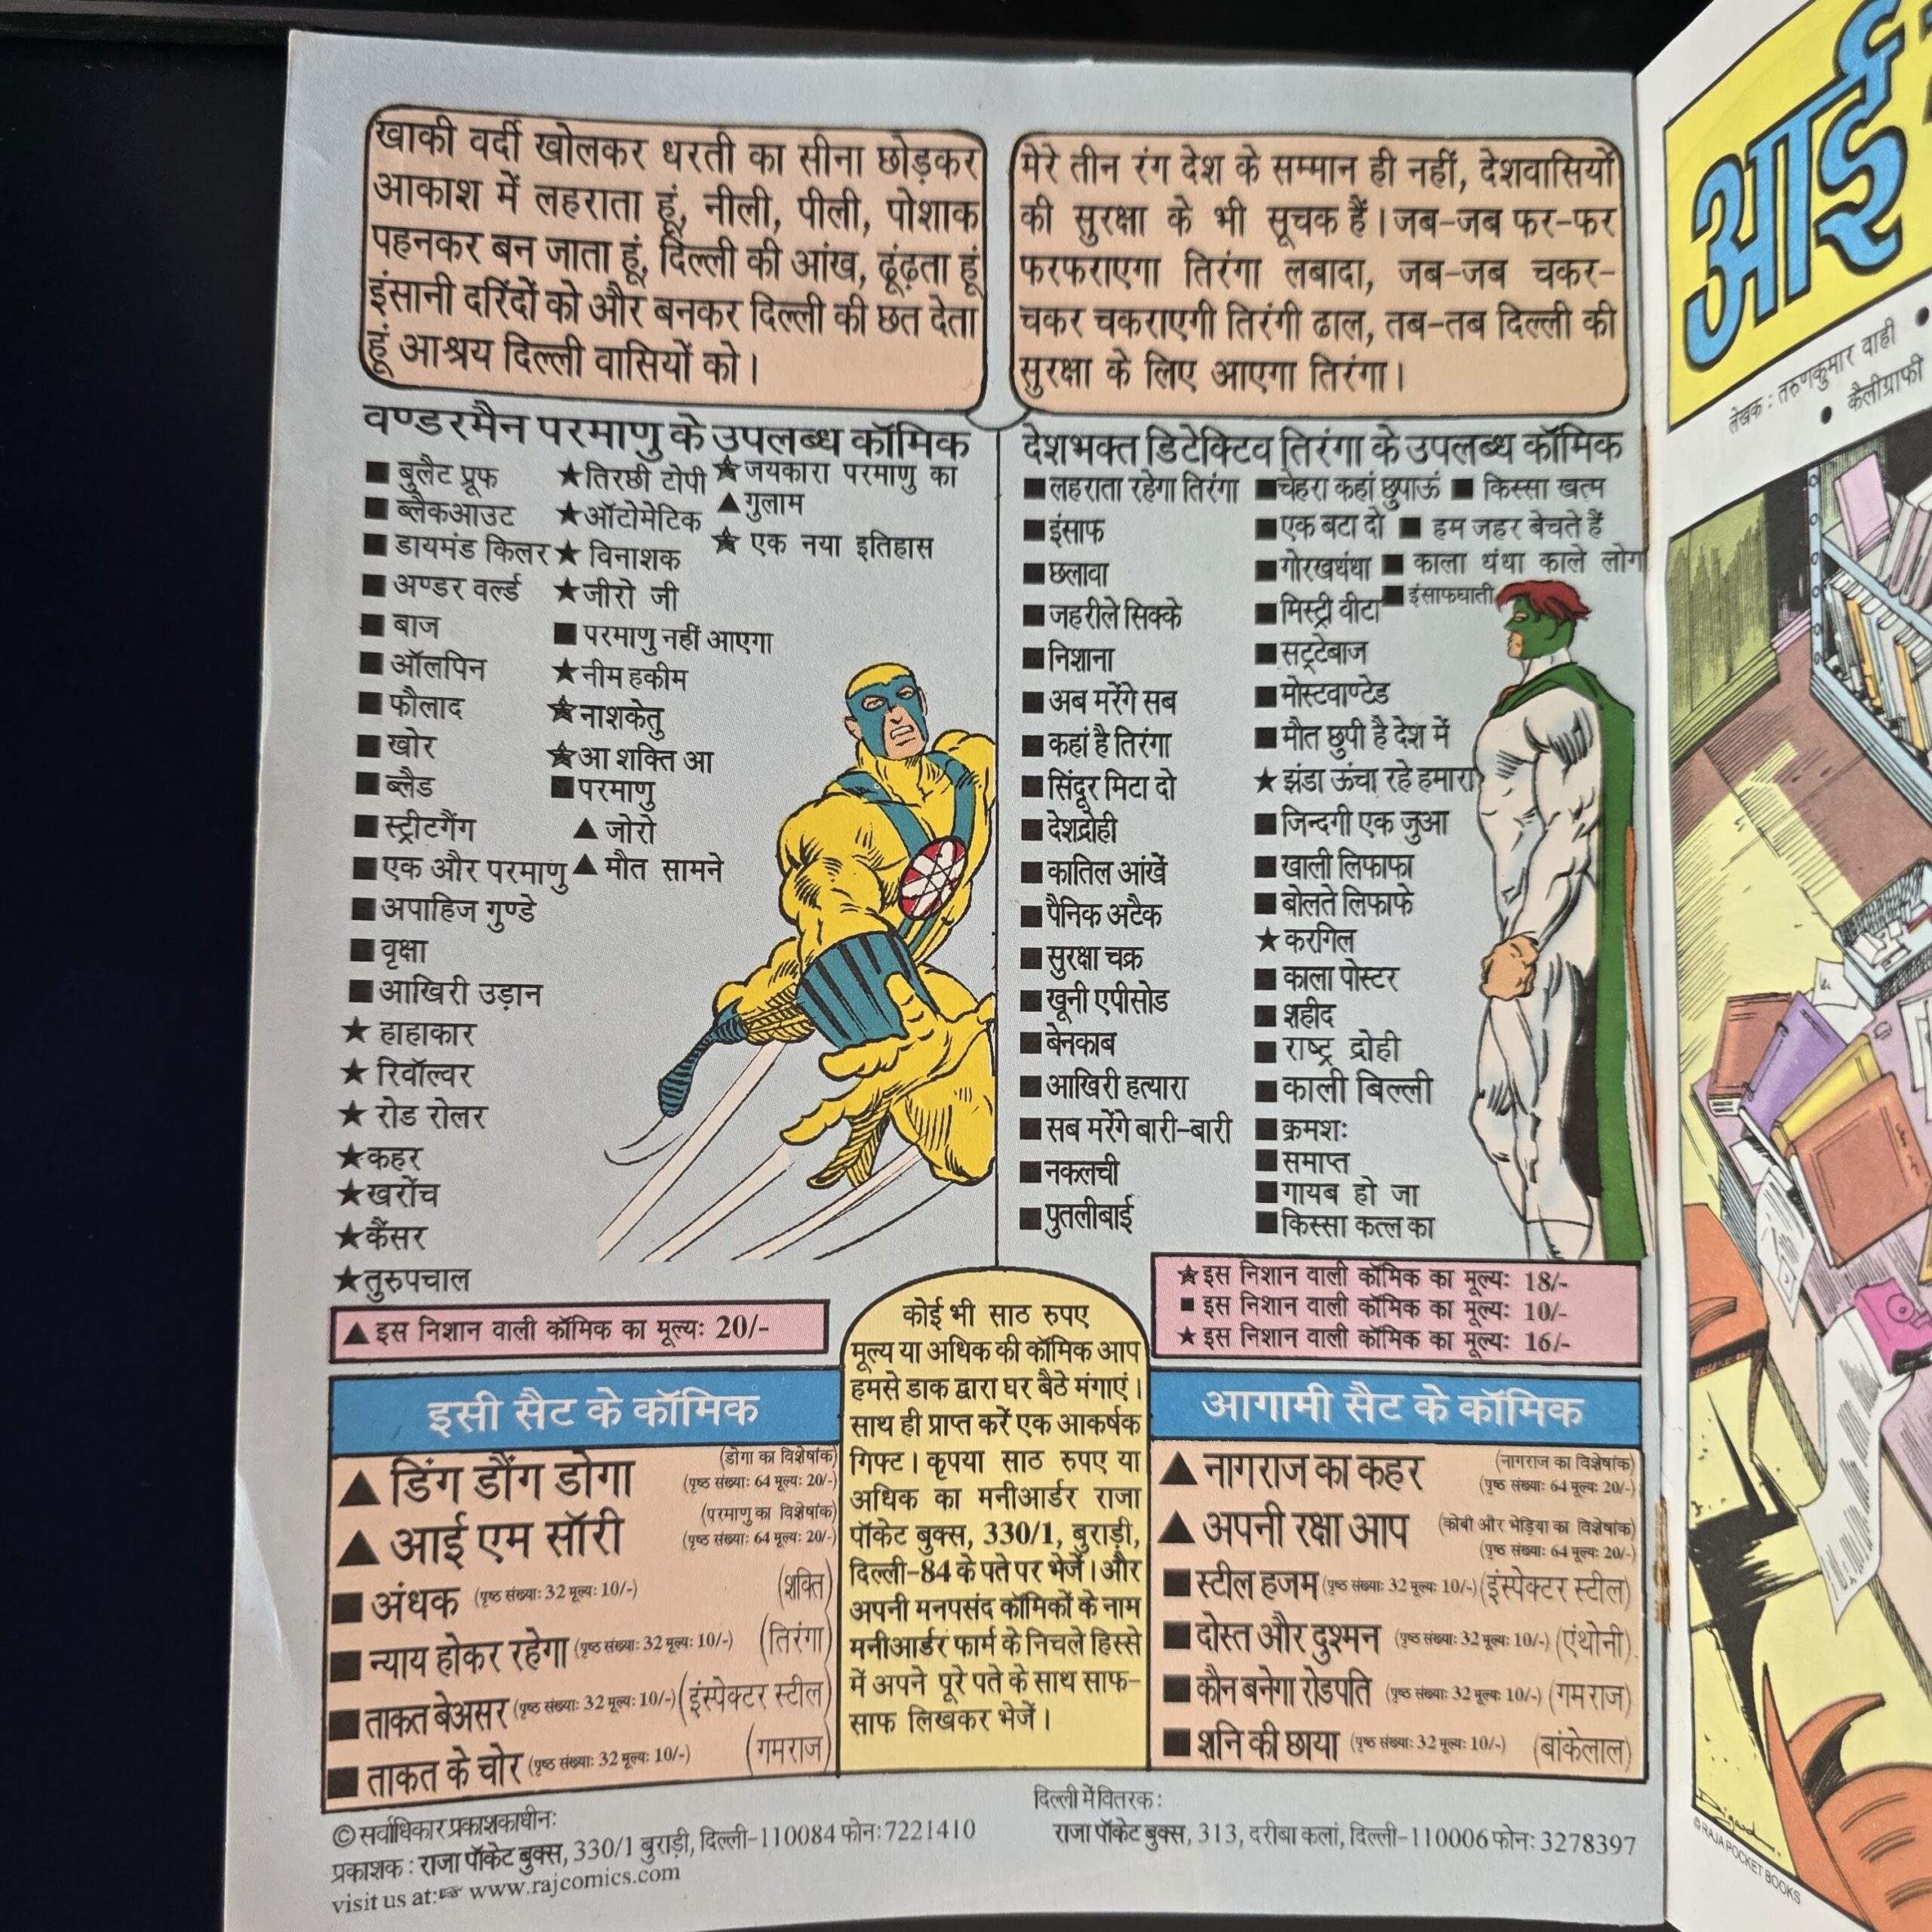 खाकी वर्दी खोलकर धरती का सीना छोड़कर
आकाश में लहराता हूं, नीली, पीली, पोशाक
पहनकर बन जाता हूं, दिल्ली की आंख, ढूंढ़ता हूं
इंसानी दरिंदों को और बनकर दिल्ली की छत देता
हूं आश्रय दिल्ली वासियों को।
वण्डरमैन परमाणु के उपलब्ध कॉमिक
■ बुलैट प्रूफ
■ ब्लैकआउट
■ डायमंड किलर
■ अण्डर वर्ल्ड
■ बाज
■ ऑलपिन
■ फौलाद
■ खोर
■ ब्लैड
■ स्ट्रीटगैंग
■ एक और परमाणु
■ अपाहिज गुण्डे
■ वृक्षा
■ आखिरी उड़ान
★ हाहाकार
★ रिवॉल्वर
★ रोड रोलर
★ कहर
★ खरोंच
★ कैंसर
★ तुरुपचाल
★ तिरछी टोपी
★ ऑटोमेटिक
★ विनाशक
★ जीरो जी
■ परमाणु नहीं आएगा
★ नीम हकीम
★ नाशकेतु
★ आ शक्ति आ
■ परमाणु
▲ जोरो
▲ मौत सामने
★ जयकारा परमाणु का
▲ गुलाम
★ एक नया इतिहास
▲ इस निशान वाली कॉमिक का मूल्यः 20/-
मेरे तीन रंग देश के सम्मान ही नहीं, देशवासियों
की सुरक्षा के भी सूचक हैं। जब-जब फर-फर
फरफराएगा तिरंगा लबादा, जब-जब चकर-
चकर चकराएगी तिरंगी ढाल, तब-तब दिल्ली की
सुरक्षा के लिए आएगा तिरंगा।
देशभक्त डिटेक्टिव तिरंगा के उपलब्ध कॉमिक
■ लहराता रहेगा तिरंगा
■ इंसाफ
■ छलावा
■ जहरीले सिक्के
■ निशाना
■ अब मरेंगे सब
■ कहां है तिरंगा
■ सिंदूर मिटा दो
■ देशद्रोही
■ कातिल आंखें
■ पैनिक अटैक
■ सुरक्षा चक्र
■ खूनी एपीसोड
■ बेनकाब
■ आखिरी हत्यारा
■ सब मरेंगे बारी-बारी
■ नकलची
■ पुतलीबाई
■ चेहरा कहां छुपाऊं
■ एक बटा दो
■ गोरखधंधा
■ मिस्ट्री वीटा
■ सट्टेबाज
■ मोस्टवाण्टेड
■ मौत छुपी है देश में
★ झंडा ऊंचा रहे हमारा
■ जिन्दगी एक जुआ
■ खाली लिफाफा
■ बोलते लिफाफे
★ करगिल
■ काला पोस्टर
■ शहीद
■ राष्ट्र द्रोही
■ काली बिल्ली
■ क्रमशः
■ समाप्त
■ गायब हो जा
■ किस्सा कत्ल का
■ किस्सा खत्म
■ हम जहर बेचते हैं
■ काला धंधा काले लोग
■ इंसाफघाती
★ इस निशान वाली कॉमिक का मूल्यः 18/-
■ इस निशान वाली कॉमिक का मूल्यः 10/-
★ इस निशान वाली कॉमिक का मूल्यः 16/-
इसी सैट के कॉमिक
▲ डिंग डौंग डोगा (डोगा का विशेषांक)
(पृष्ठ संख्याः 64 मूल्यः 20/-)
▲ आई एम सॉरी (परमाणु का विशेषांक)
(पृष्ठ संख्याः 64 मूल्यः 20/-)
■ अंधक (पृष्ठ संख्याः 32 मूल्यः 10/-) (शक्ति)
■ न्याय होकर रहेगा (पृष्ठ संख्याः 32 मूल्यः 10/-) (तिरंगा)
■ ताकत बेअसर (पृष्ठ संख्याः 32 मूल्यः 10/-) (इंस्पेक्टर स्टील)
■ ताकत के चोर (पृष्ठ संख्याः 32 मूल्यः 10/-) (गमराज)
कोई भी साठ रुपए
मूल्य या अधिक की कॉमिक आप
हमसे डाक द्वारा घर बैठे मंगाएं।
साथ ही प्राप्त करें एक आकर्षक
गिफ्ट। कृपया साठ रुपए या
अधिक का मनीआर्डर राजा
पॉकेट बुक्स, 330/1, बुराड़ी,
दिल्ली-84 के पते पर भेजें। और
अपनी मनपसंद कॉमिकों के नाम
मनीआर्डर फार्म के निचले हिस्से
में अपने पूरे पते के साथ साफ-
साफ लिखकर भेजें।
आगामी सैट के कॉमिक
▲ नागराज का कहर (नागराज का विशेषांक)
(पृष्ठ संख्याः 64 मूल्यः 20/-)
▲ अपनी रक्षा आप (कोबी और भेड़िया का विशेषांक)
(पृष्ठ संख्याः 64 मूल्यः 20/-)
■ स्टील हजम (पृष्ठ संख्याः 32 मूल्यः 10/-) (इंस्पेक्टर स्टील)
■ दोस्त और दुश्मन (पृष्ठ संख्याः 32 मूल्यः 10/-) (एंथोनी)
■ कौन बनेगा रोडपति (पृष्ठ संख्याः 32 मूल्यः 10/-) (गमराज)
■ शनि की छाया (पृष्ठ संख्याः 32 मूल्यः 10/-) (बांकेलाल)
© सर्वाधिकार प्रकाशकाधीनः
प्रकाशक : राजा पॉकेट बुक्स, 330/1 बुराड़ी, दिल्ली-110084 फोनः 7221410
visit us at:☞ www.rajcomics.com
दिल्ली में वितरक :
राजा पॉकेट बुक्स, 313, दरीबा कलां, दिल्ली-110006 फोन: 3278397
आई
लेखक : तरुणकुमार वाही
● कैलीग्राफी
© RAJA POCKET BOOKS